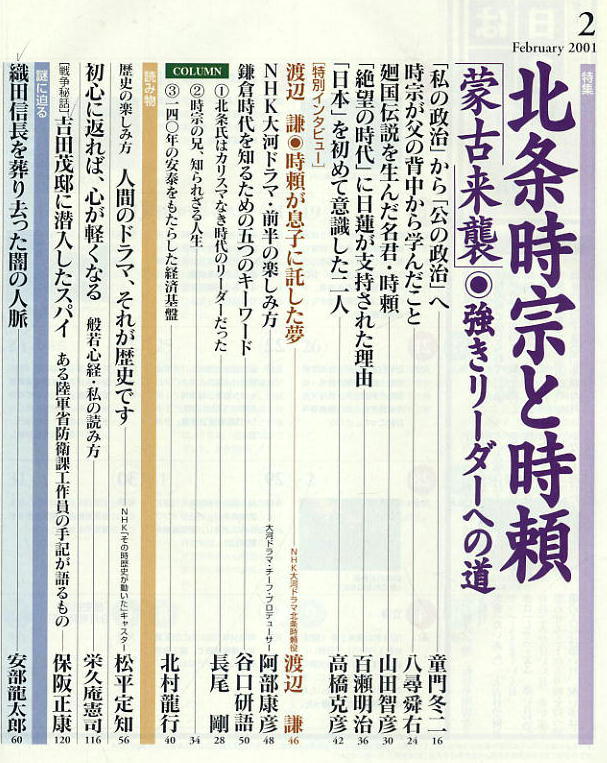 2
February 2001
特集
北条時宗と時頼
「蒙古来襲」◉強きリーダーへの道
「私の政治」から「公の政治」へ 童門冬二 16
時宗が父の背中から学んだこと 八尋舜右 24
廻国伝説を生んだ名君・時頼 山田智彦 30
「絶望の時代」に日蓮が支持された理由 百瀬明治 36
「日本」を初めて意識した二人 高橋克彦 42
[特別インタビュー]
渡辺 謙◉時頼が息子に託した夢 NHK大河ドラマ北条時頼役 渡辺 謙 46
NHK大河ドラマ・前半の楽しみ方 大河ドラマ・チーフ・プロデューサー 阿部康彦 48
鎌倉時代を知るための五つのキーワード 谷口研語 50
COLUMN
①北条氏はカリスマなき時代のリーダーだった 長尾 剛 28
②時宗の兄、知られざる人生 34
③一四〇年の安泰をもたらした経済基盤 北村龍行 40
読み物
歴史の楽しみ方 人間のドラマ、それが歴史です NHK「その時歴史が動いた」キャスター 松平定知 56
初心に返れば、心が軽くなる 般若心経・私の読み方 栄久庵憲司 116
[戦争秘話]吉田茂邸に潜入したスパイ ある陸軍省防衛課工作員の手記が語るもの 保阪正康 120
謎に迫る
織田信長を葬り去った闇の人脈 安部龍太郎 60